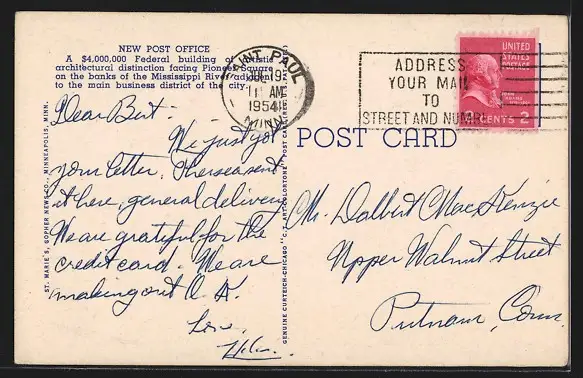 NEW POST OFFICE
A $4,000,000 Federal building of artistic
architectural distinction facing Pioneer Square
on the banks of the Mississippi River adjacent
to the main business district of the city.
SAINT PAUL
19
11 AM
1954
MINN.
ADDRESS
YOUR MAIL
TO
STREET AND NUMBER
UNITED
STATES
POSTAGE
CENTS 2
POST CARD
Dear Bert:
We just got
your letter. Theresa sent
it here, general delivery
We are grateful for the
credit card. We are
making out O.K.
Love,
Helen.
Mr. Dalbert MacKenzie
Upper Walnut Street
Putnam, Conn.
ST. MARIE'S, GOPHER NEWS CO., MINNEAPOLIS, MINN.
GENUINE CURTEICH-CHICAGO "C.T. ART-COLORTONE" POST CARD (REG. U.S. PAT. OFF.)